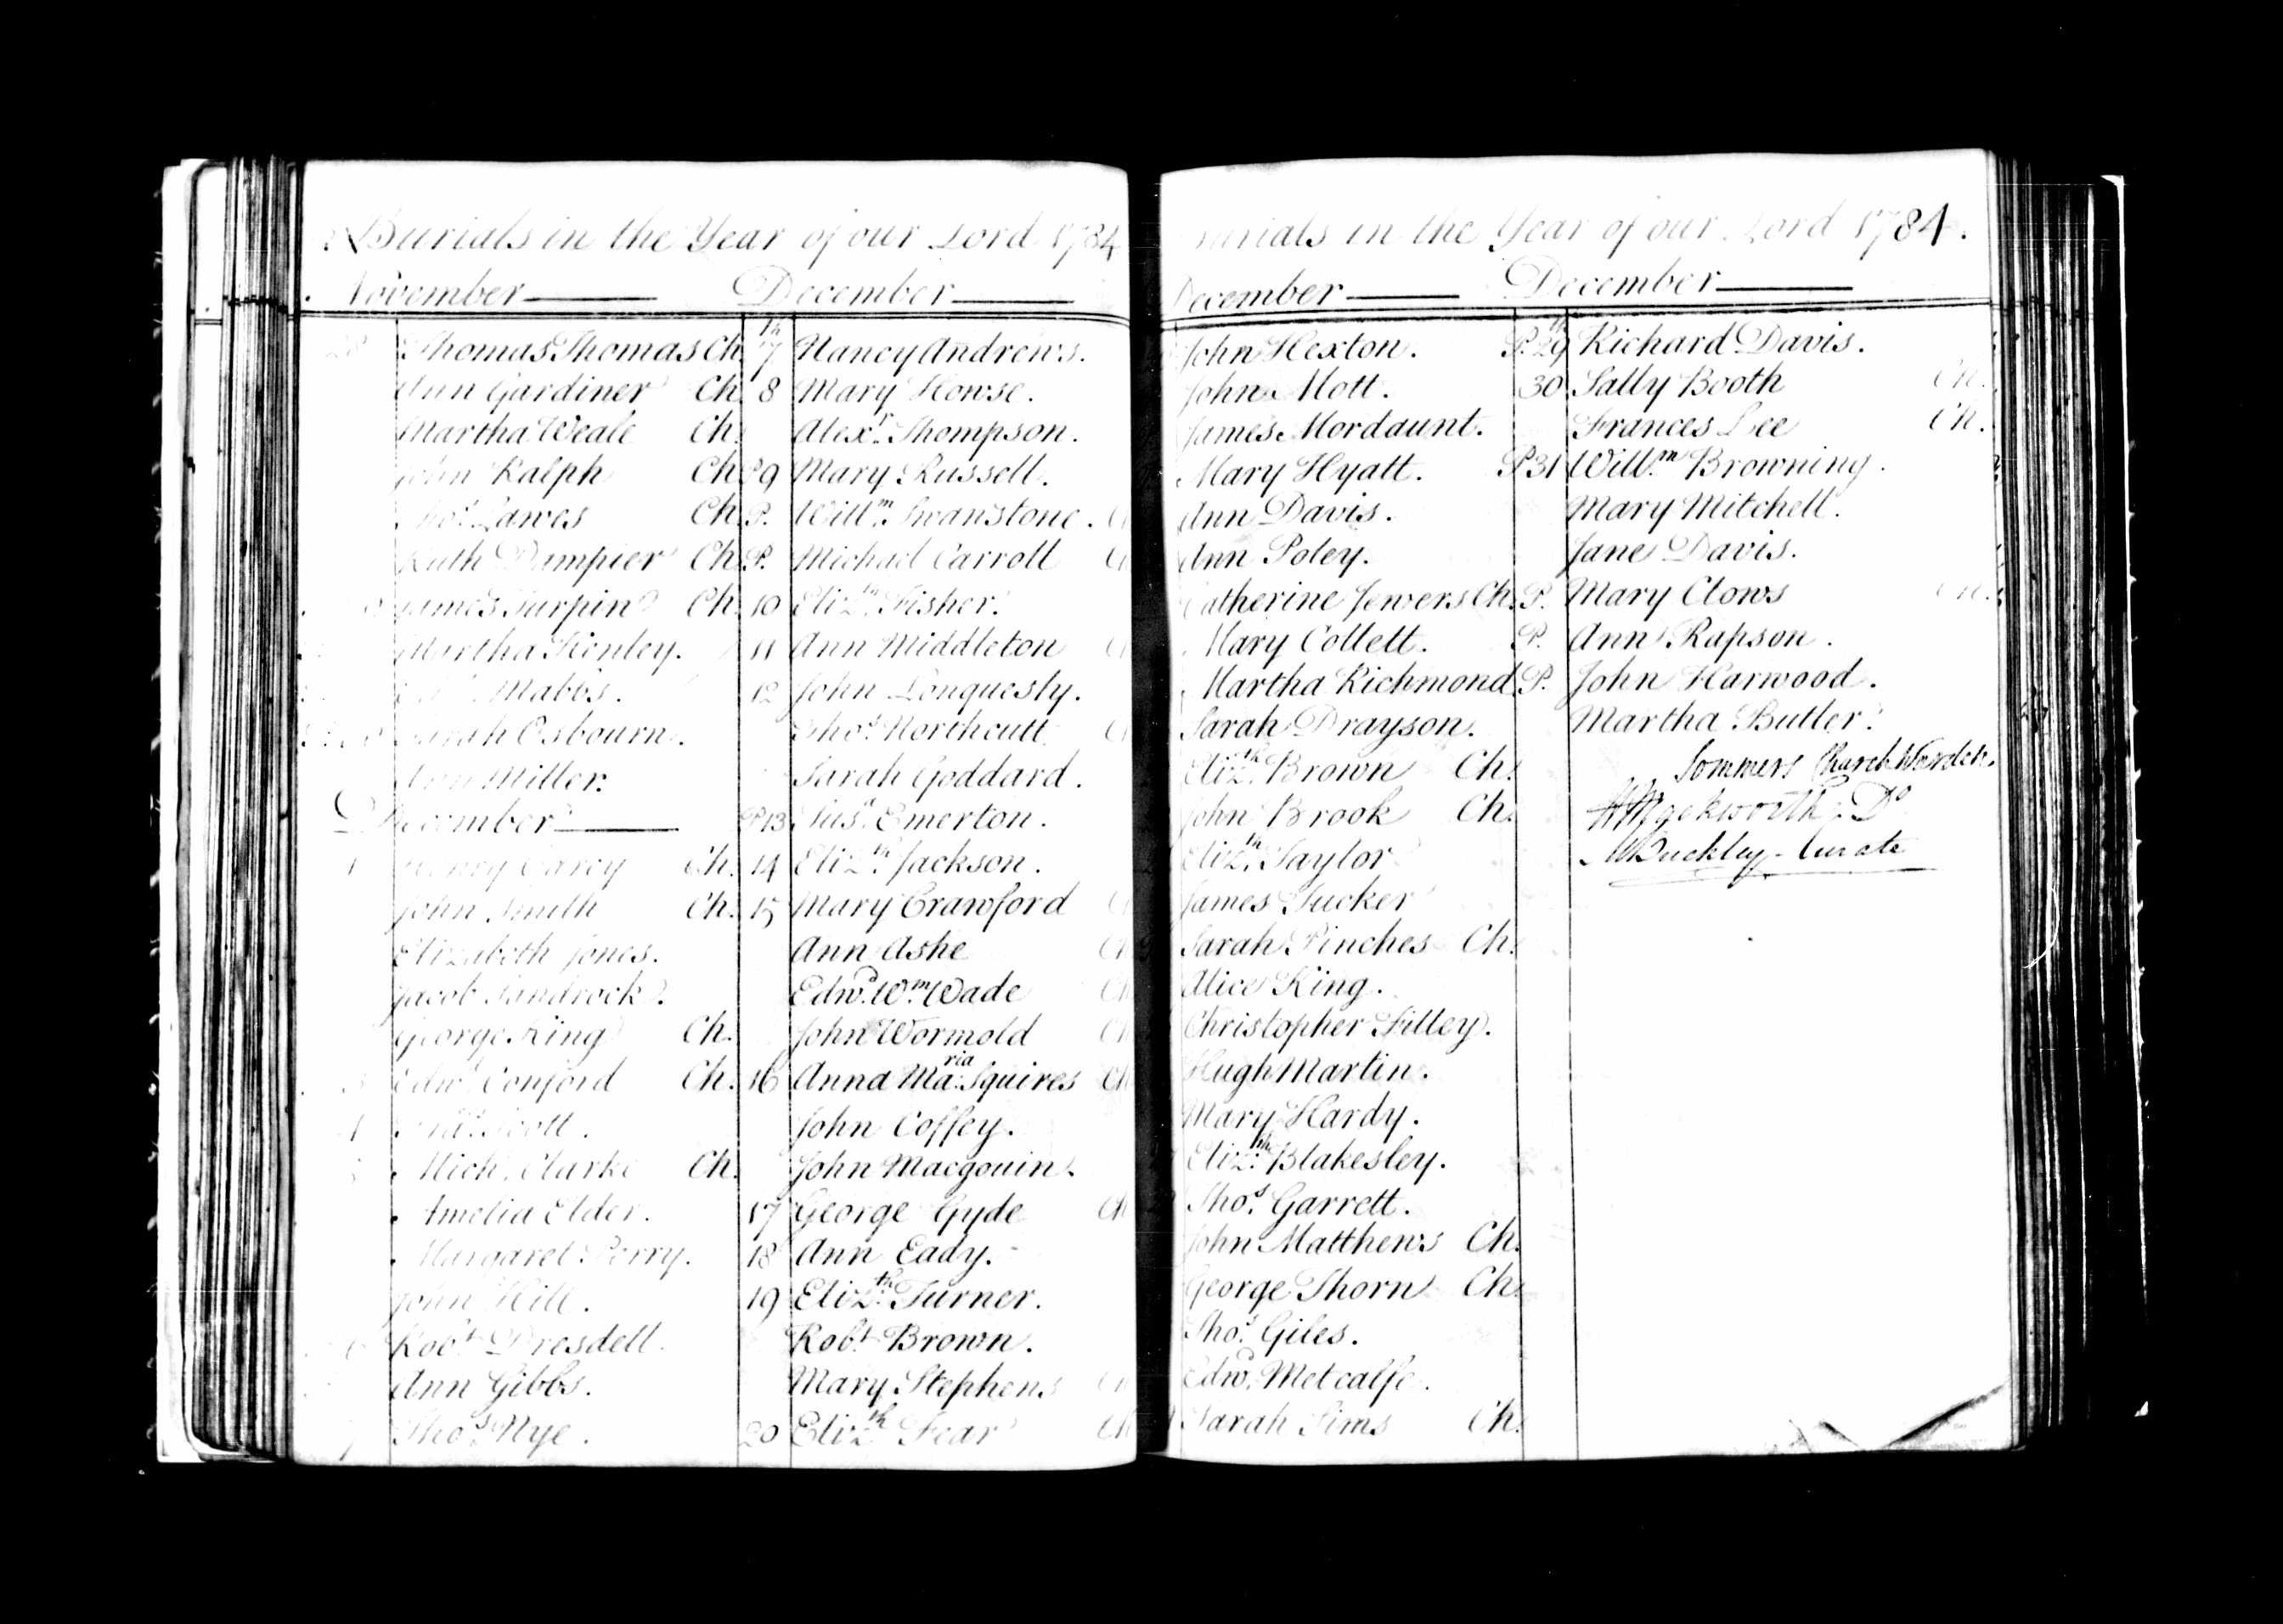 Burials in the Year of our Lord 1784
November
28 Thomas Thomas Ch.
Ann Gardiner Ch.
Martha Weale Ch.
John Ralph Ch.
Thos. Lawes Ch.
Ruth Dampier Ch.
James Turpin Ch.
Martha Henley.
Mabbs.
Sarah Osbourn.
Ann Miller.
December
1 Carey Ch.
John Smith Ch.
Elizabeth Jones.
Jacob Sandrock.
George King Ch.
3 Edwd. Conford Ch.
4 Scott.
5 Mich. Clarke Ch.
Amelia Elder.
Margaret Perry.
John Hill.
6 Robt. Dresdell.
Ann Gibbs.
7 Thos. Nye.
December
7th Nancy Andrews.
8 Mary Howse.
Alexr. Thompson.
P9 Mary Russell.
P. Willm. Swanstone. Ch
P. Michael Carroll Ch
10 Elizth. Fisher.
11 Ann Middleton Ch
12 John Longuesty.
Thos. Northcutt Ch
Sarah Goddard.
P13 Susa. Emerton.
14 Elizth. Jackson.
15 Mary Crawford Ch
Ann Ashe Ch
Edwd. Wm. Wade Ch
John Wormold Ch
16 Anna Maria. Squires Ch
John Coffey.
John Macgouin.
17 George Gyde Ch
18 Ann Eady.
19 Elizth. Turner.
Robt. Brown.
Mary Stephens Ch
20 Elizth. Fear Ch
Burials in the Year of our Lord 1784.
December
John Hexton.
John Mott.
James Mordaunt.
Mary Hyatt.
Ann Davis.
Ann Poley.
Catherine Jewers Ch.
Mary Collett.
Martha Richmond
Sarah Drayson.
Elizth. Brown Ch.
John Brook Ch.
Elizth. Taylor
James Tucker
Sarah Pinches Ch.
Alice King.
Christopher Filley.
Hugh Martin.
Mary Hardy.
Elizth. Blakesley.
Thos. Garrett.
John Matthews Ch.
George Thorn Ch.
Thos. Giles.
Edwd. Metcalfe.
Sarah Sims Ch.
December
P. 29th Richard Davis.
30 Sally Booth Ch.
Frances Lee Ch.
P31 Willm. Browning.
Mary Mitchell.
Jane Davis.
P. Mary Clows Ch.
P. Ann Rapson.
P. John Harwood.
Martha Butler.
Sommers Church Warden.
Do
Buckley - Curate